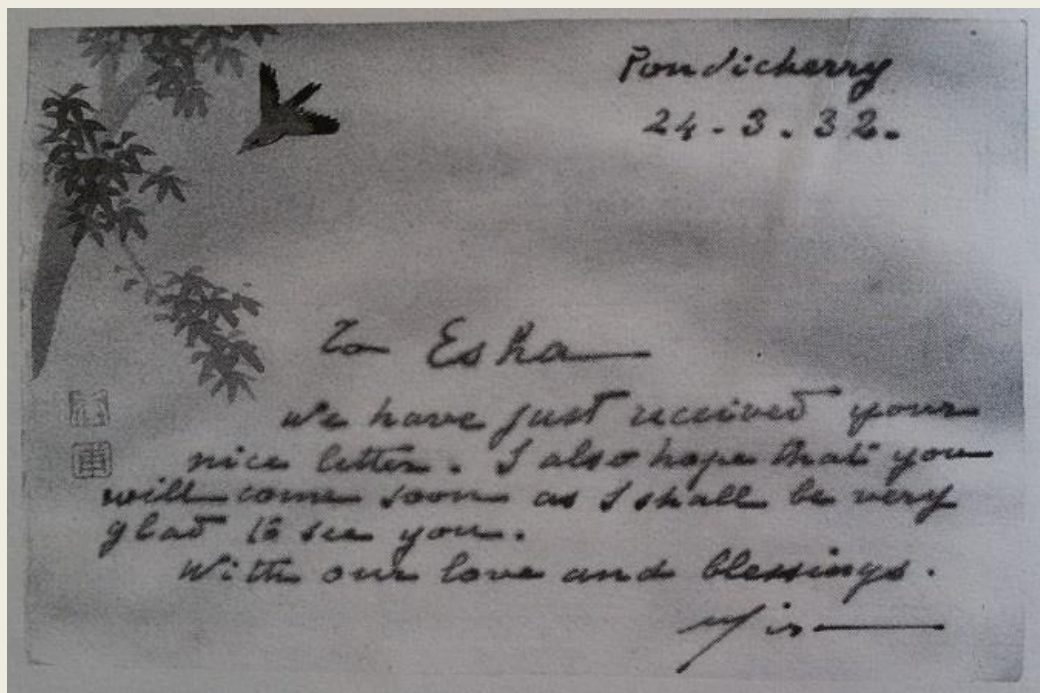 Pondicherry
24.3.32.
To Esha
We have just received your
nice letter. I also hope that you
will come soon as I shall be very
glad to see you.
With our love and blessings.